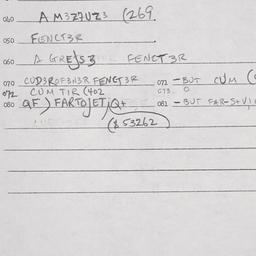 060 A M3ZZUZ3 (269.
050 FENCT3R
060 A GRE/S3 FENCT3R
070 CUD3ROF3N3R FENCT3R 071 - BUT CUM (
072 CUM TIR (402 073 0
080 QF) FARTOJETjQ+ 081 - BUT FAR-S+V
($ 53262)